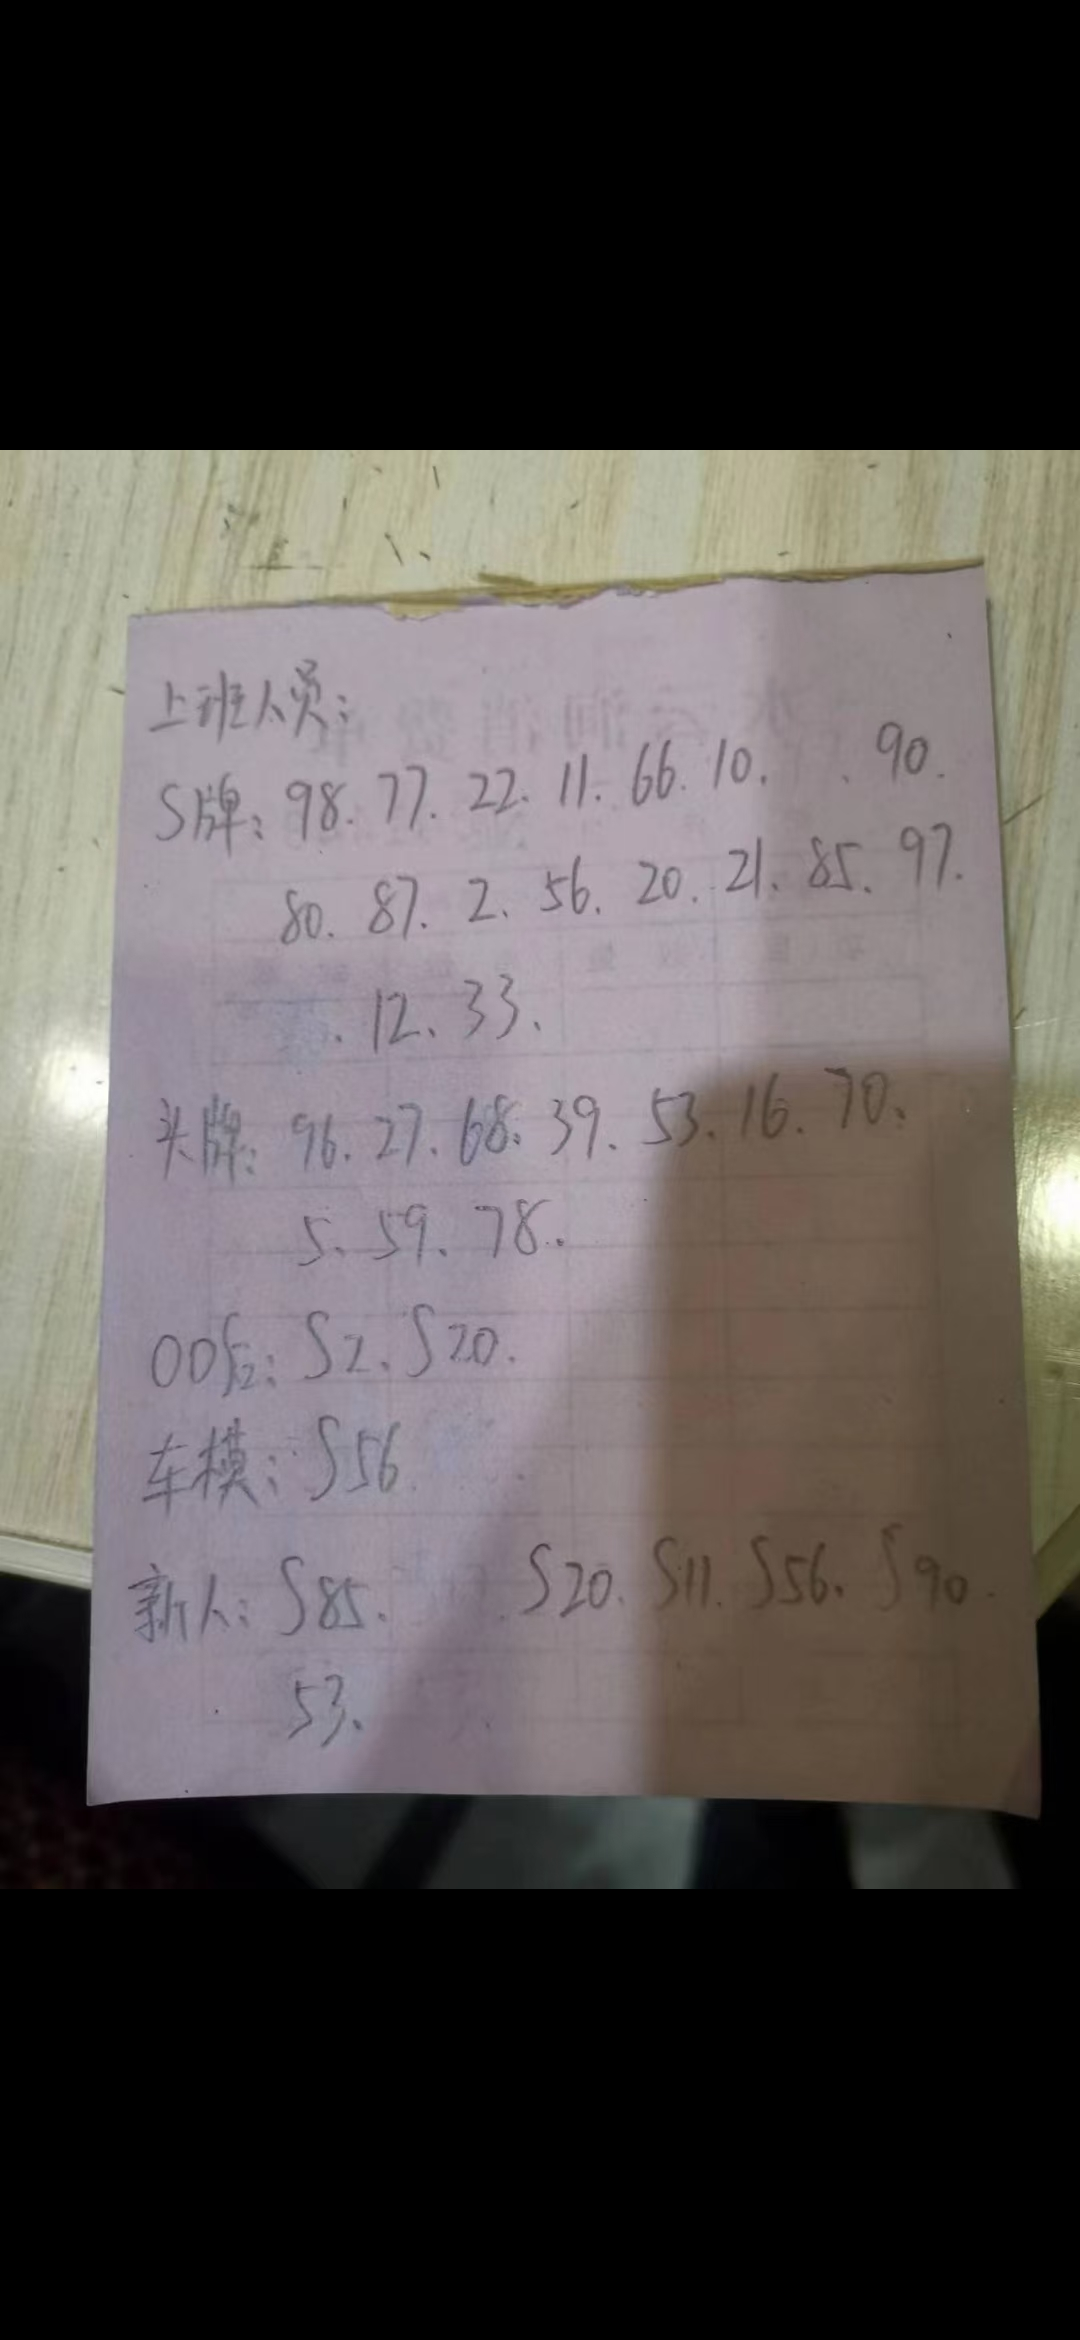 上班人员:
S牌: 98. 77. 22. 11. 66. 10. . 90.
80. 87. 2. 56. 20. 21. 85. 97.
. 12. 33.
头牌: 96. 27. 68. 39. 53. 16. 70.
5. 59. 78.
00后: S2. S20.
车模: S56.
新人: S85. S20. S11. S56. S90.
53.